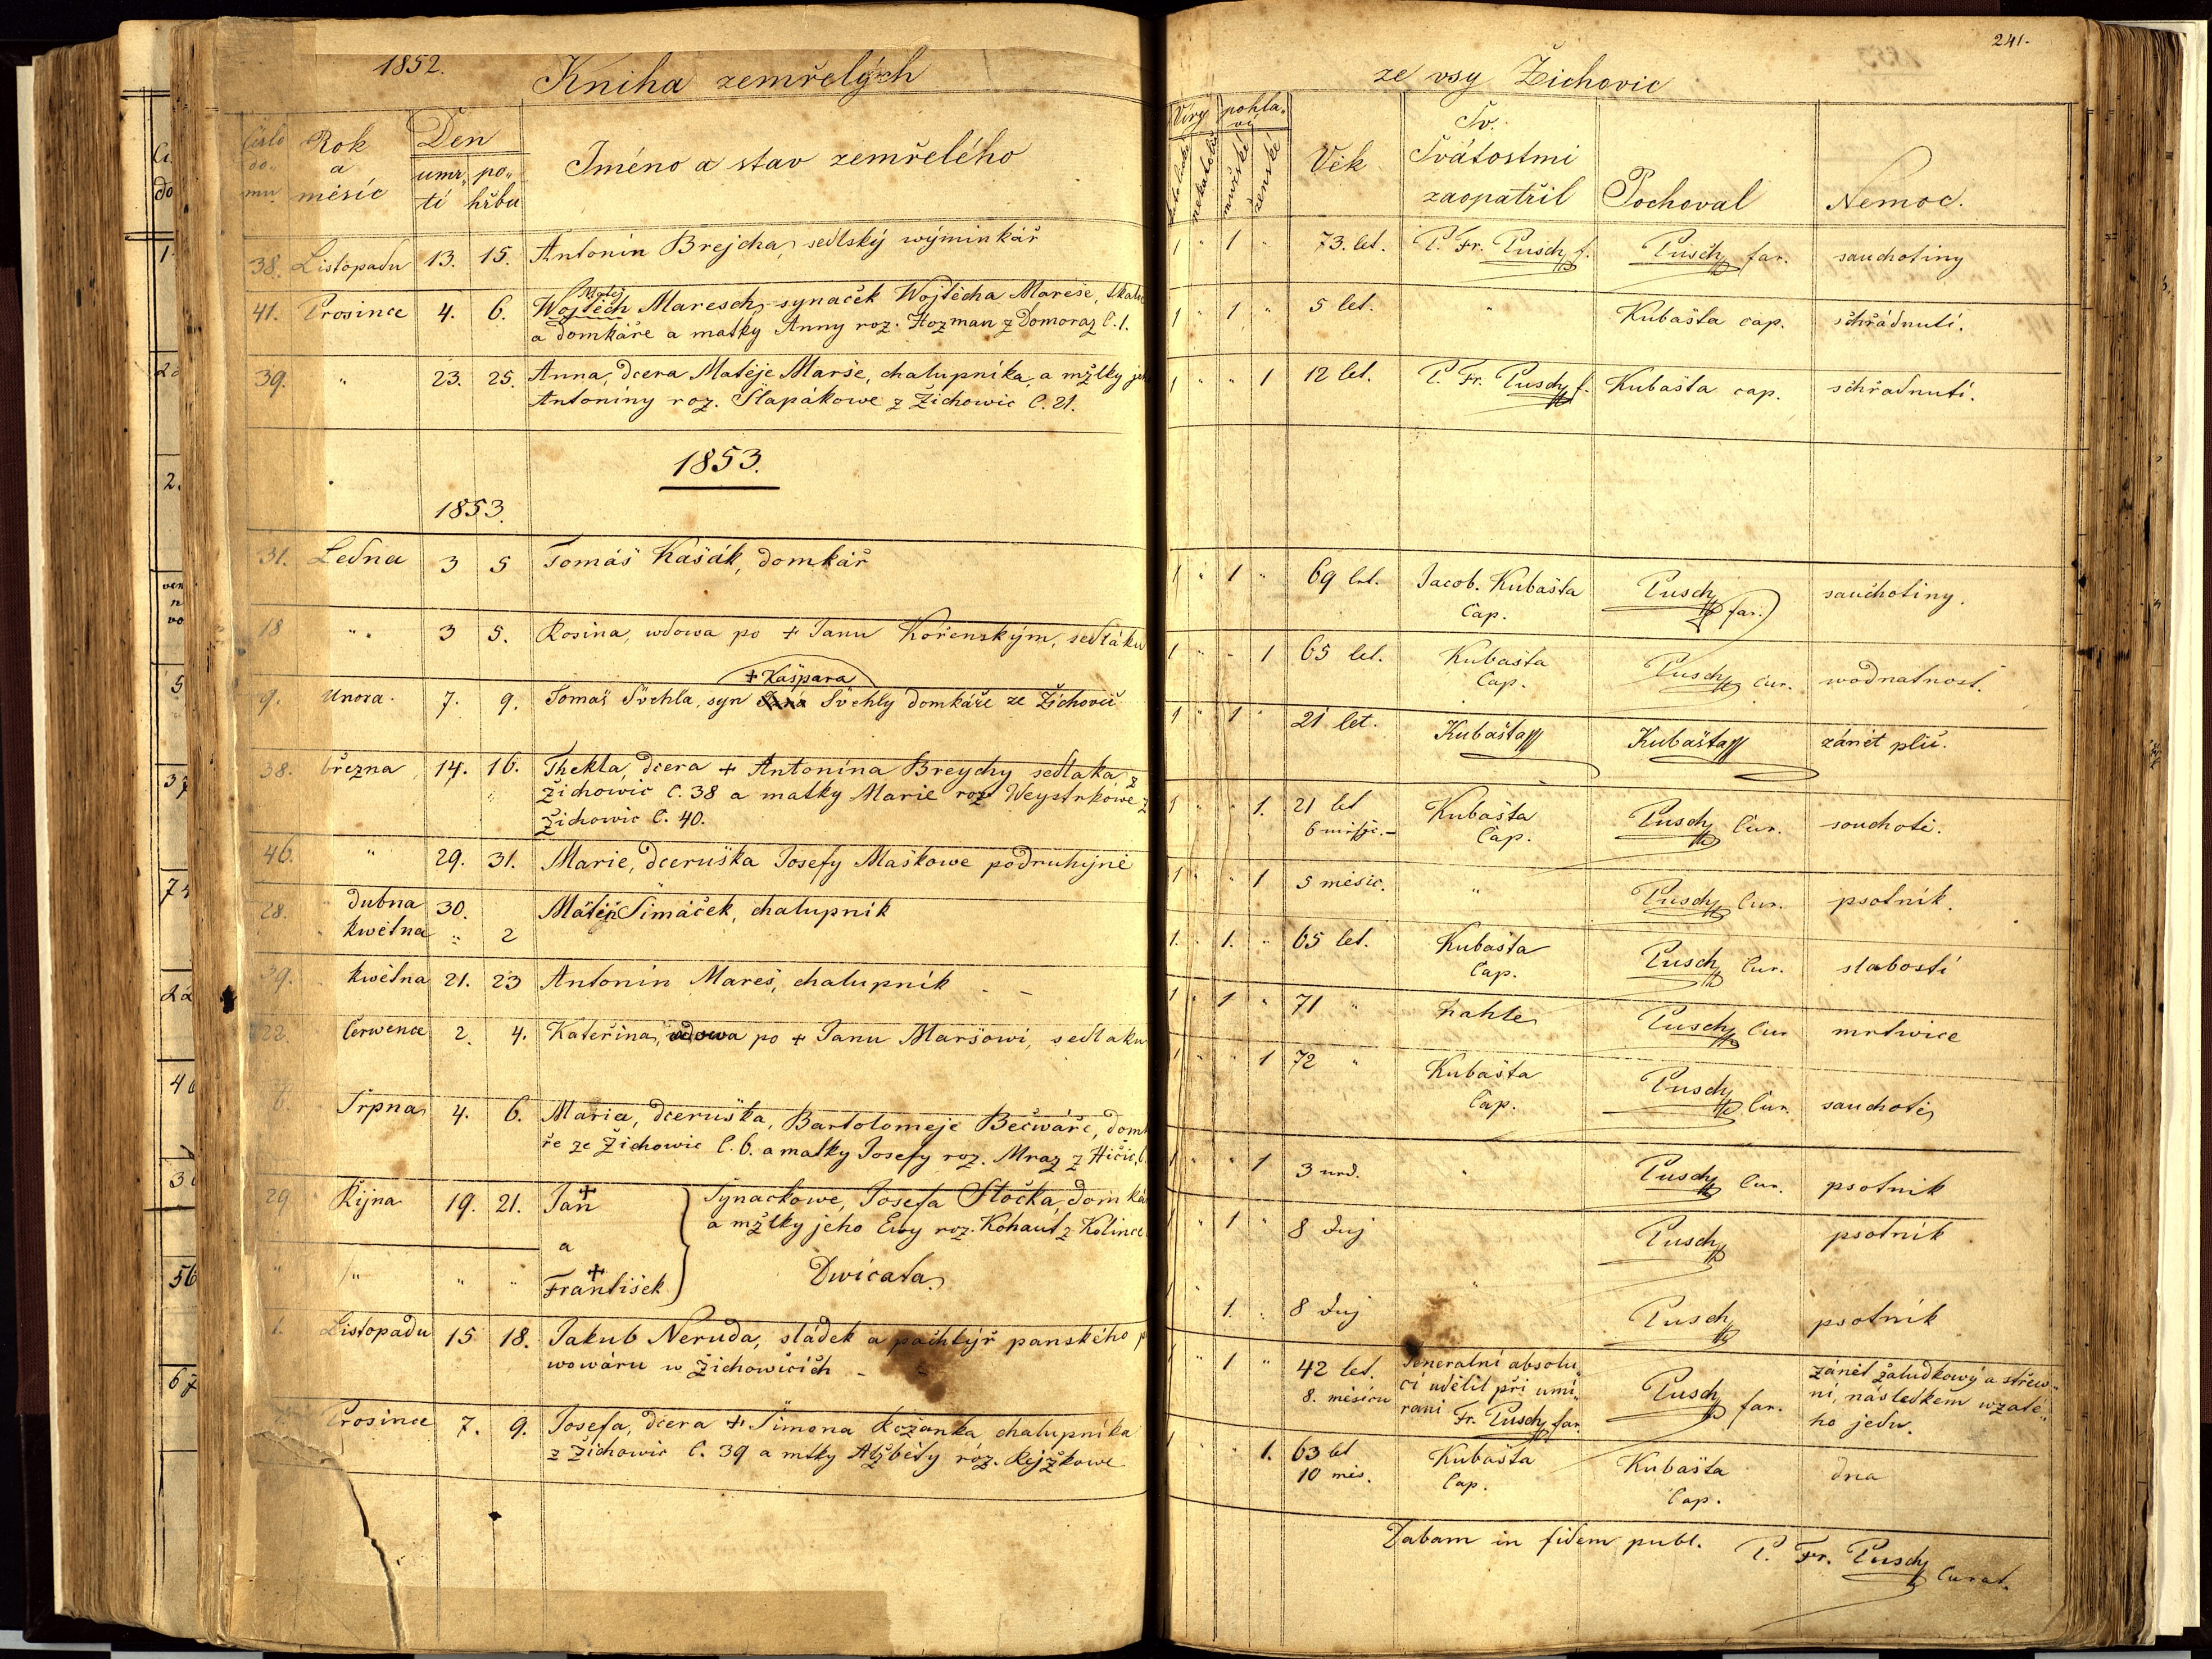 1852.
Kniha zemřelých
Číslo do„ mu.
Rok a měsíc
Den
umr„ tí
po„ hřbu
Jméno a stav zemřelého
38. Listopadu 13. 15. Antonín Brejcha, sedlský wýminkář
Matěj
41. Prosince 4. 6. Wojtěch Maresch, synaček Wojtěcha Mareše,
a domkáře a matky Anny roz. Hozman z Domoraz č. 1.
39. " 23. 25. Anna, dcera Matěje Marše, chalupníka, a mžlky
Antoniny roz. Šlapákowe z Žichowic č. 21.
1853.
1853.
31. Ledna 3 5 Tomáš Kašák, domkář
18 " 3 5. Rosina, wdowa po + Janu Kořenským, sedláku
+ Kašpara
9. Unora. 7. 9. Tomaš Šwehla, syn Šwehly domkáře ze Žichovic
38. března 14. 16. Thekla, dcera + Antonína Breychy sedlaka z
Žichowic č. 38 a matky Marie roz Weystrkowe z
Žichowic č. 40.
46. " 29. 31. Marie, dceruška Josefy Maškowe podruhyně
28. dubna 30. Matěj Šimáček, chalupník
kwětna " 2
39. kwětna 21. 23 Antonín Mareš, chalupník - -
22. Čerwence 2. 4. Kateřina, wdowa po + Janu Maršowi, sedlaku
6. Srpna 4. 6. Maria, dceruška, Bartolomeje Bečwáře,
ře ze Žichowic č. 6. a matky Josefy roz. Mraz z
29 Řijna 19. 21. Jan + Synačkowe, Josefa Stočka,
a mžlky jeho Ewy roz. Kohaut z Kolince
a
" " " " František + Dwičata
1. Listopadu 15 18. Jakub Neruda, sládek a pachtýř panského
wowáru w Žichowicích -
Prosince 7. 9. Josefa, dcera + Šimona Kožanka chalupníka
z Žichowic č. 39 a mtky Alžběty roz. Rejžkowe
241.
ze vsy Žichovic
Víry
pohla„ ví
katolické
nekatolické
mužské
ženské
Věk
Sv. Svátostmi zaopatřil
Pochoval
Nemoc.
1 " 1 " 73. let. P. Fr. Pusch f. Pusch far. sauchotiny
1 " 1 " 5 let. " Kubašta cap. schřádnutí.
1 " " 1 12 let. P. Fr. Pusch f. Kubašta cap. schřadnutí.
1 " 1 " 69 let. Jacob. Kubašta Cap. Pusch far. sauchotiny.
1 " " 1 65 let. Kubašta Cap. Pusch Cur. wodnatnost.
1 " 1 " 21 let. Kubašta Kubašta zánět plic.
1 " " 1. 21 let Kubašta Cap. Pusch Cur. souchotě.
1 " " 1 5 měsíc. " Pusch Cur. psotník.
1. " 1. " 65 let. Kubašta Cap. Pusch Cur. slabostí
1 " 1 " 71 " nahle Pusch Cur mrtwice
1 " " 1 72 " Kubašta Cap. Pusch Cur. sauchotě
1 " " 1 3 " Pusch Cur. psotník
1 " 1 " 8 Pusch psotník
1. 8 " Pusch psotník
1 " 1 " 42 let. 8. měsíců Generalní absolu„
cí udělil při umí„
rání Fr. Pusch far. Pusch far. zánět žaludkowý a střew„
ní, následkem wzaté„
ho jedu.
1 " " 1. 63 let 10 měs. Kubašta Cap. Kubašta Cap. dna
Dabam in fidem publ. P. Fr. Pusch Curat.